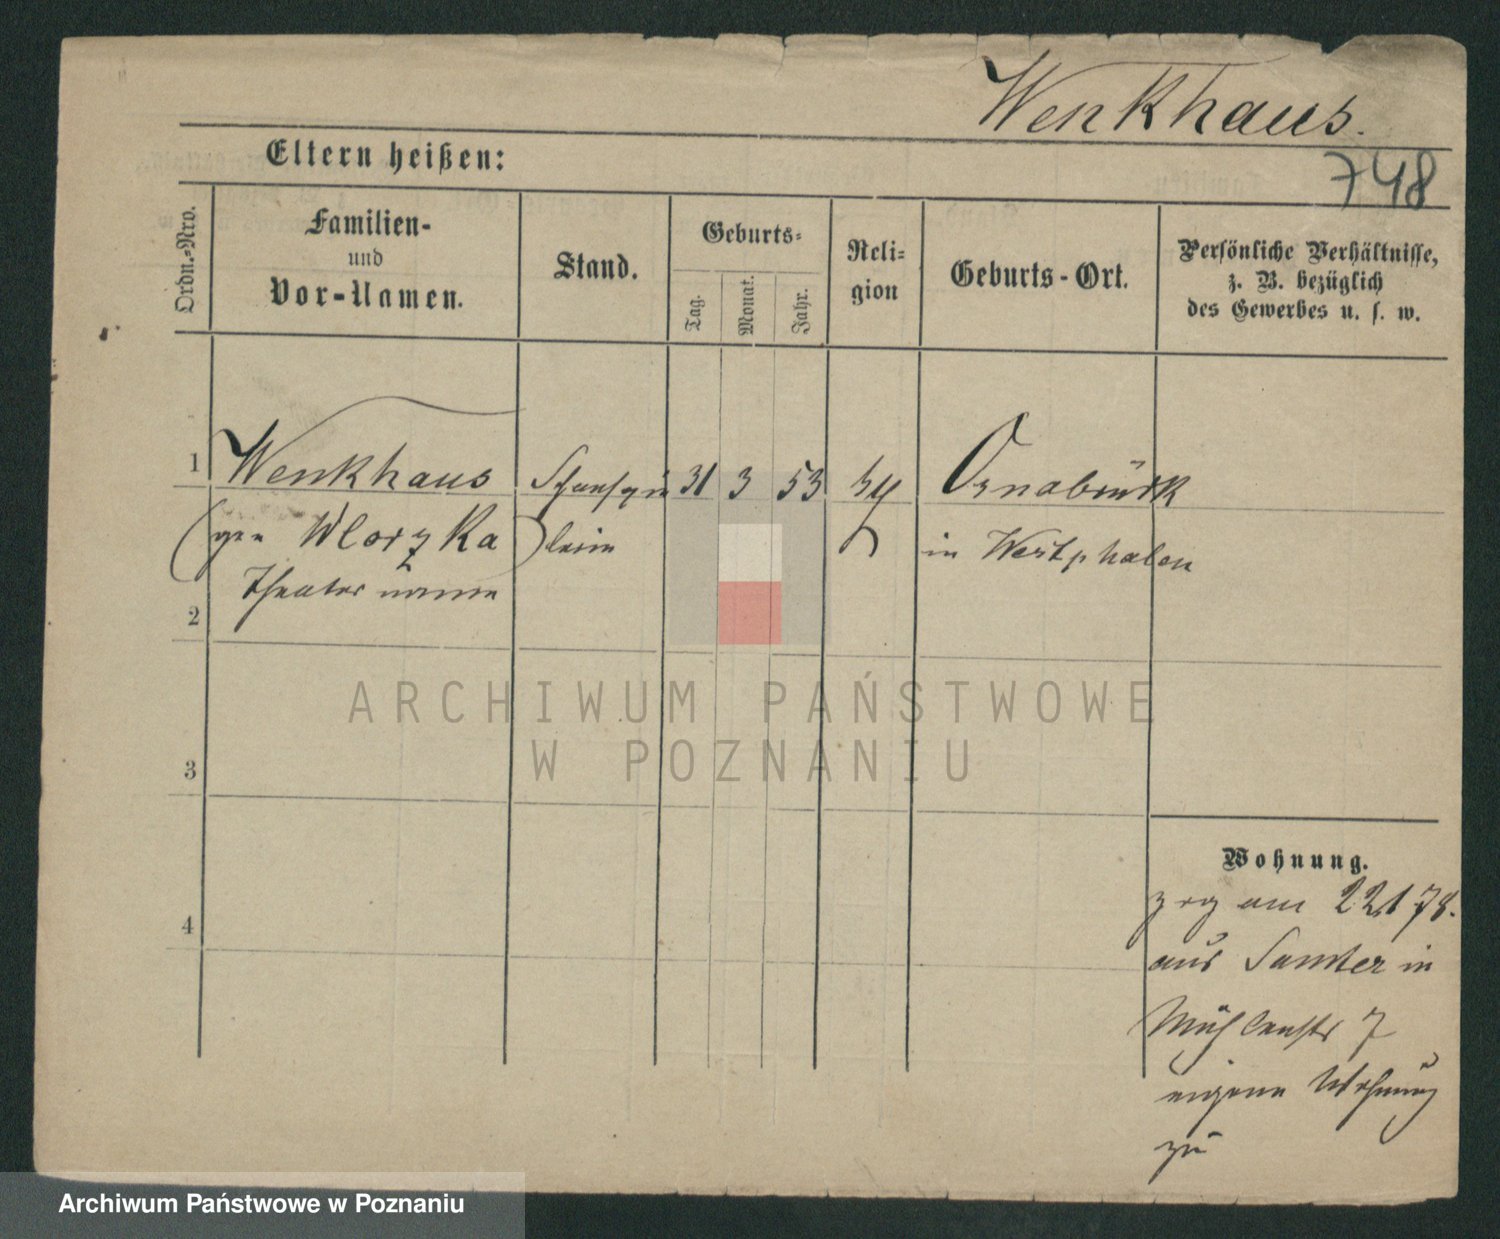 Wenkhaus.
748
Eltern heißen:
Ordn.-Nro.
Familien-
und
Vor-Namen.
Stand.
Geburts-
Tag.
Monat.
Jahr.
Reli-
gion
Geburts-Ort.
Persönliche Verhältnisse,
z. B. bezüglich
des Gewerbes u. s. w.
1 Wenkhaus Schauspie 31 3 53 Osnabrück
(gen Wloczka) lerin in Westphalen
Theatername
2
ARCHIWUM PAŃSTWOWE
W POZNANIU
3
Wohnung.
4
zog am 22 1 78.
aus Samter in
Mühlenstr 7
eigene Wohnung
zu
Archiwum Państwowe w Poznaniu